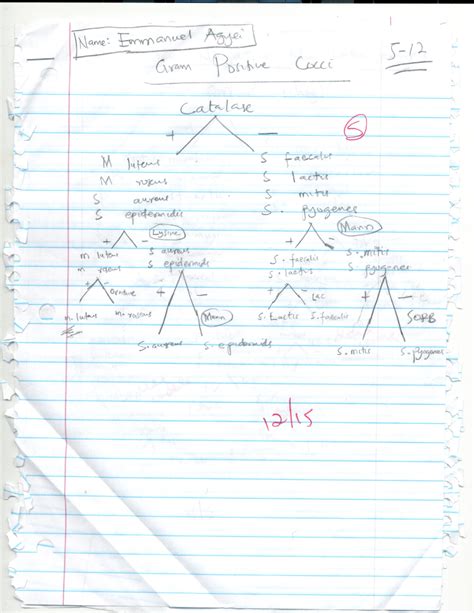 Name: Emmanuel Agyei
5-12
Gram Positive Cocci
Catalase
+ -
5
M luteus S faecalis
M roseus S lactis
S aureus S mitis
S epidermids S. pyogenes
+ - Lysine + - Mann
m. luteus S aureus S. faecalis S. mitis
m roseus S epidermids S. lactis S pyogenes
+ - Ornitine + - + - Lac + -
m. luteus m. roseus Mann S. Lactis S. faecalis SORB
S. aureus S. epidermids S. mitis S. pyogenes
12/15